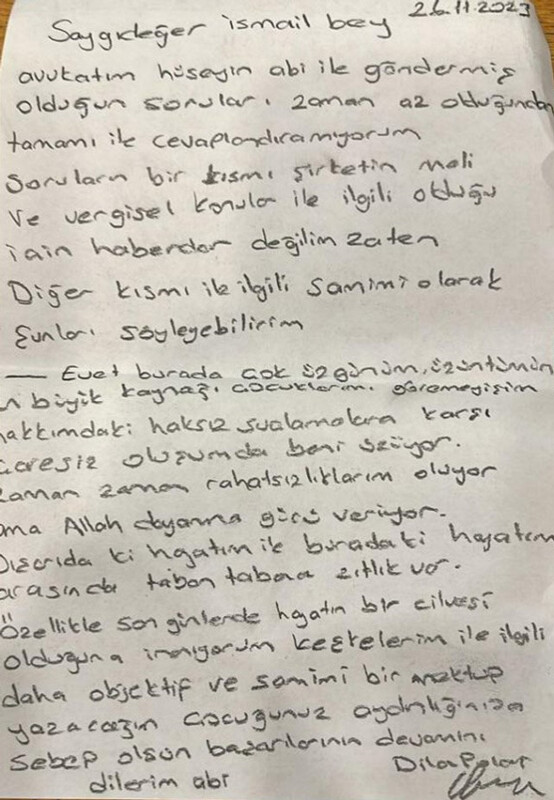 26.11.2023
Saygıdeğer ismail bey
avukatım hüseyin abi ile göndermiş
olduğun soruları zaman az olduğundan
tamamı ile cevaplandıramıyorum
Soruların bir kısmı şirketin mali
ve vergisel konular ile ilgili olduğu
için haberdar değilim zaten
Diğer kısmı ile ilgili samimi olarak
şunları söyleyebilirim
— Evet burada çok üzgünüm, üzüntümün
n büyük kaynağı çocuklarımı göremeyişim
hakkımdaki haksız suçlamalara karşı
çaresiz oluşumda beni üzüyor.
zaman zaman rahatsızlıklarım oluyor
ama Allah dayanma gücü veriyor.
Dışarıda ki hayatım ile buradaki hayatım
arasında taban tabana zıtlık var.
Özellikle son günlerde hayatın bir cilvesi
olduğuna inanıyorum keşkelerim ile ilgili
daha objektif ve samimi bir mektup
yazacağım çocuğunuz aydınlığınıza
Sebep olsun başarılarının devamını
dilerim abi
Dilan Polat